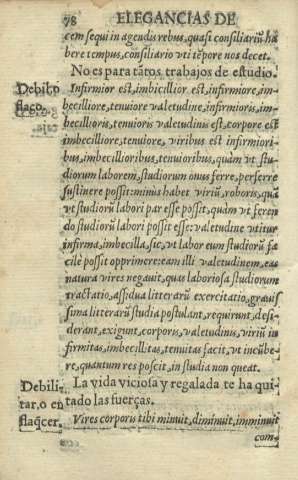 78 ELEGANCIAS DE
cem sequi in agendis rebus, quasi consiliariũ ha
bere tempus, consiliario vti tẽpore nos decet.
No es para tãtos trabajos de estudio.
Debil, o
flaco.
Infirmior est, imbicillior est, infirmiore, im-
becilliore, tenuiore valetudine, infirmioris, im-
becillioris, tenuioris valetudinis est, corpore est
imbecilliore, tenuiore, viribus est infirmiori-
bus, imbecillioribus, tenuioribus, quàm vt stu-
diorum laborem, studiorum onus ferre, perferre
sustinere possit: minus habet viriũ, roboris, quã
vt studiorũ labori par esse possit, quàm vt feren
do studiorũ labori possit esse: valetudine vtitur
infirma, imbecilla, sic, vt labor eum studiorũ fa-
cilè possit opprimere: eam illi valetudinem, eas
natura vires negauit, quas laboriosa studiorum
tractatio, assidua litterarũ exercitatio, grauis
sima litterarũ studia postulant, requirunt, desi-
derant, exigunt, corporis, valetudinis, viriũ in
firmitas, imbecillitas, tenuitas facit, vt incũbe-
re, quantum res poscit, in studia non queat.
Debili-
tar, o en
flaq̃cer.
La vida viciosa y regalada te ha qui
tado las fuerças.
Vires corporis tibi minuit, diminuit, imminuit
com-